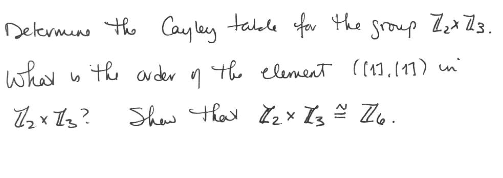 Determine the Cayley table for the group ℤ₂×ℤ₃.
What is the order of the element ([1],[1]) in
ℤ₂×ℤ₃? Show that ℤ₂×ℤ₃ ≅ ℤ₆.